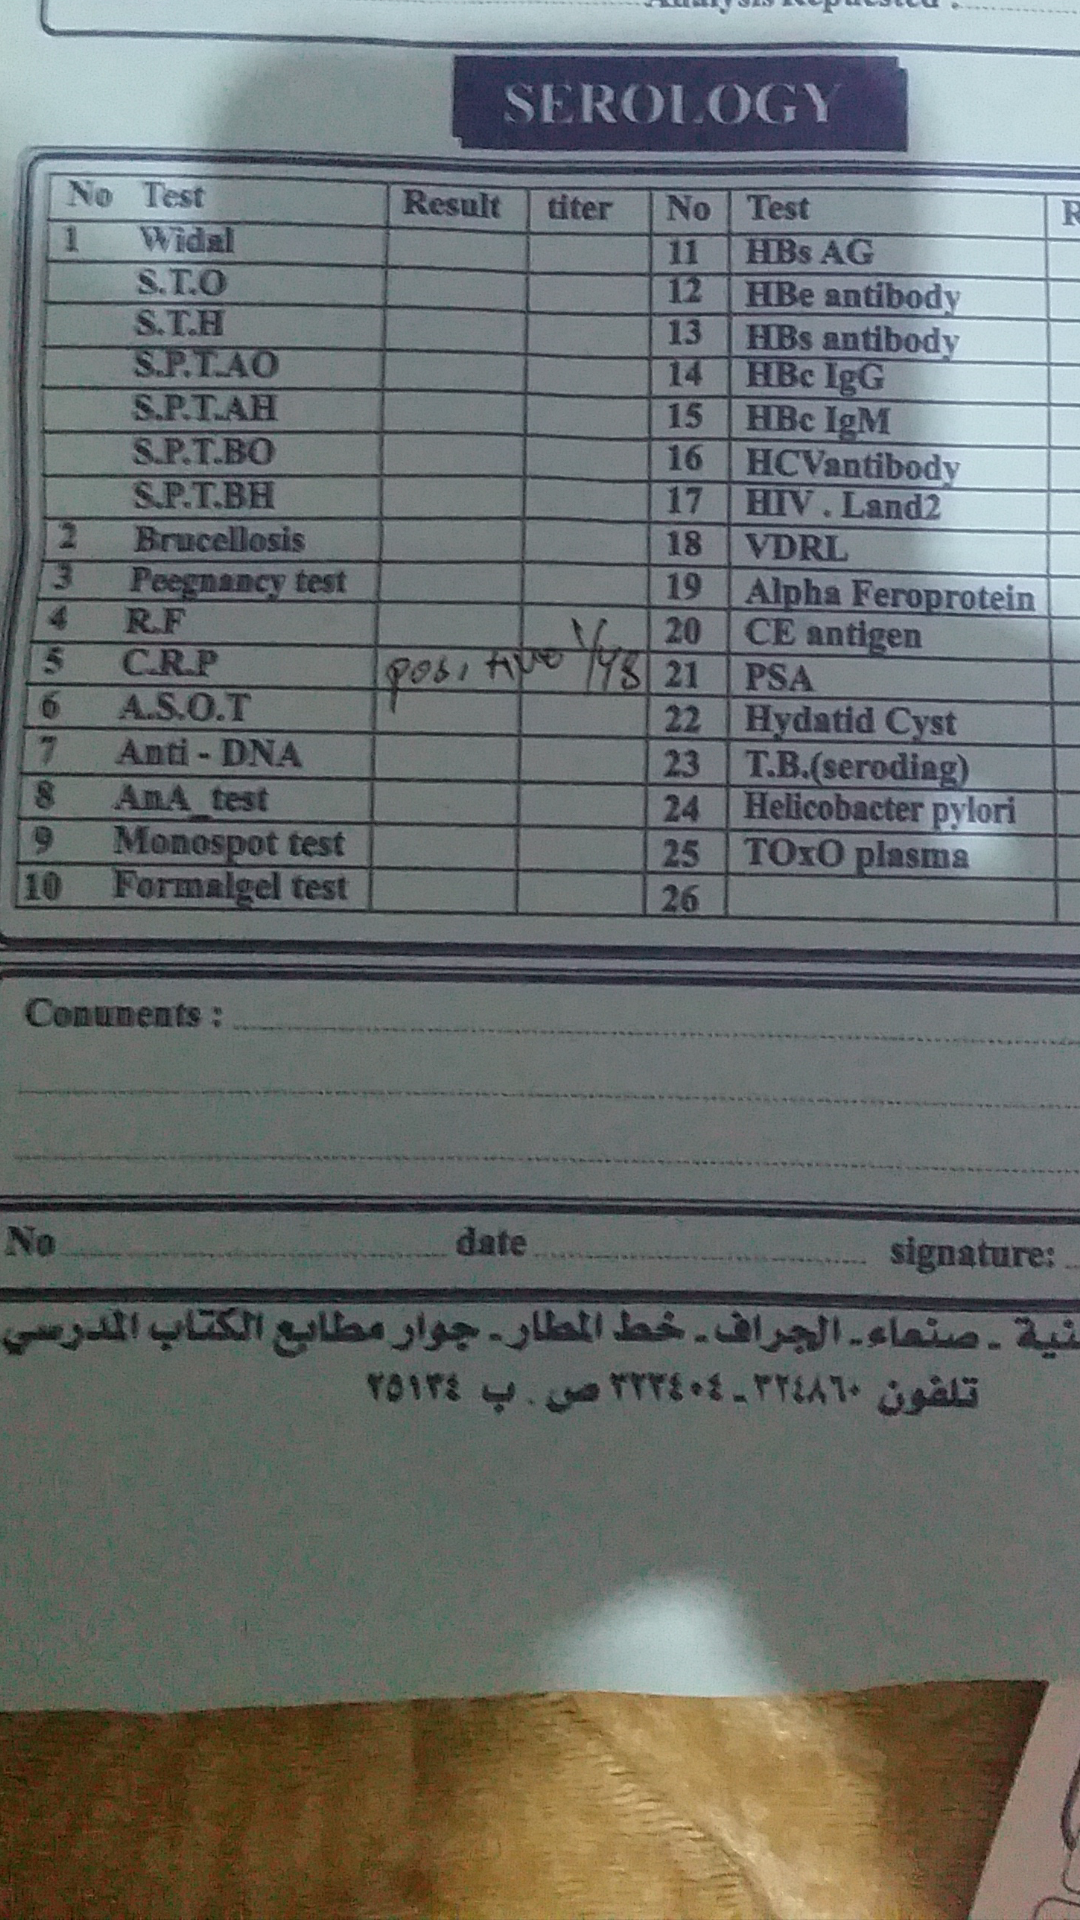 Analysis Requested :
SEROLOGY
No Test Result titer No Test R
1 Widal 11 HBs AG
S.T.O 12 HBe antibody
S.T.H 13 HBs antibody
S.P.T.AO 14 HBc IgG
S.P.T.AH 15 HBc IgM
S.P.T.BO 16 HCVantibody
S.P.T.BH 17 HIV . Land2
2 Brucellosis 18 VDRL
3 Peegnancy test 19 Alpha Feroprotein
4 R.F 20 CE antigen
5 C.R.P positive 1/48 21 PSA
6 A.S.O.T 22 Hydatid Cyst
7 Anti - DNA 23 T.B.(serodiag)
8 AnA_test 24 Helicobacter pylori
9 Monospot test 25 TOxO plasma
10 Formalgel test 26
Conunents :
No date signature:
صنعاء - الجراف - خط المطار - جوار مطابع الكتاب المدرسي
تلفون ٣٢٤٨٦٠ - ٣٢٣٤٠٤ ص . ب ٢٥١٣٤